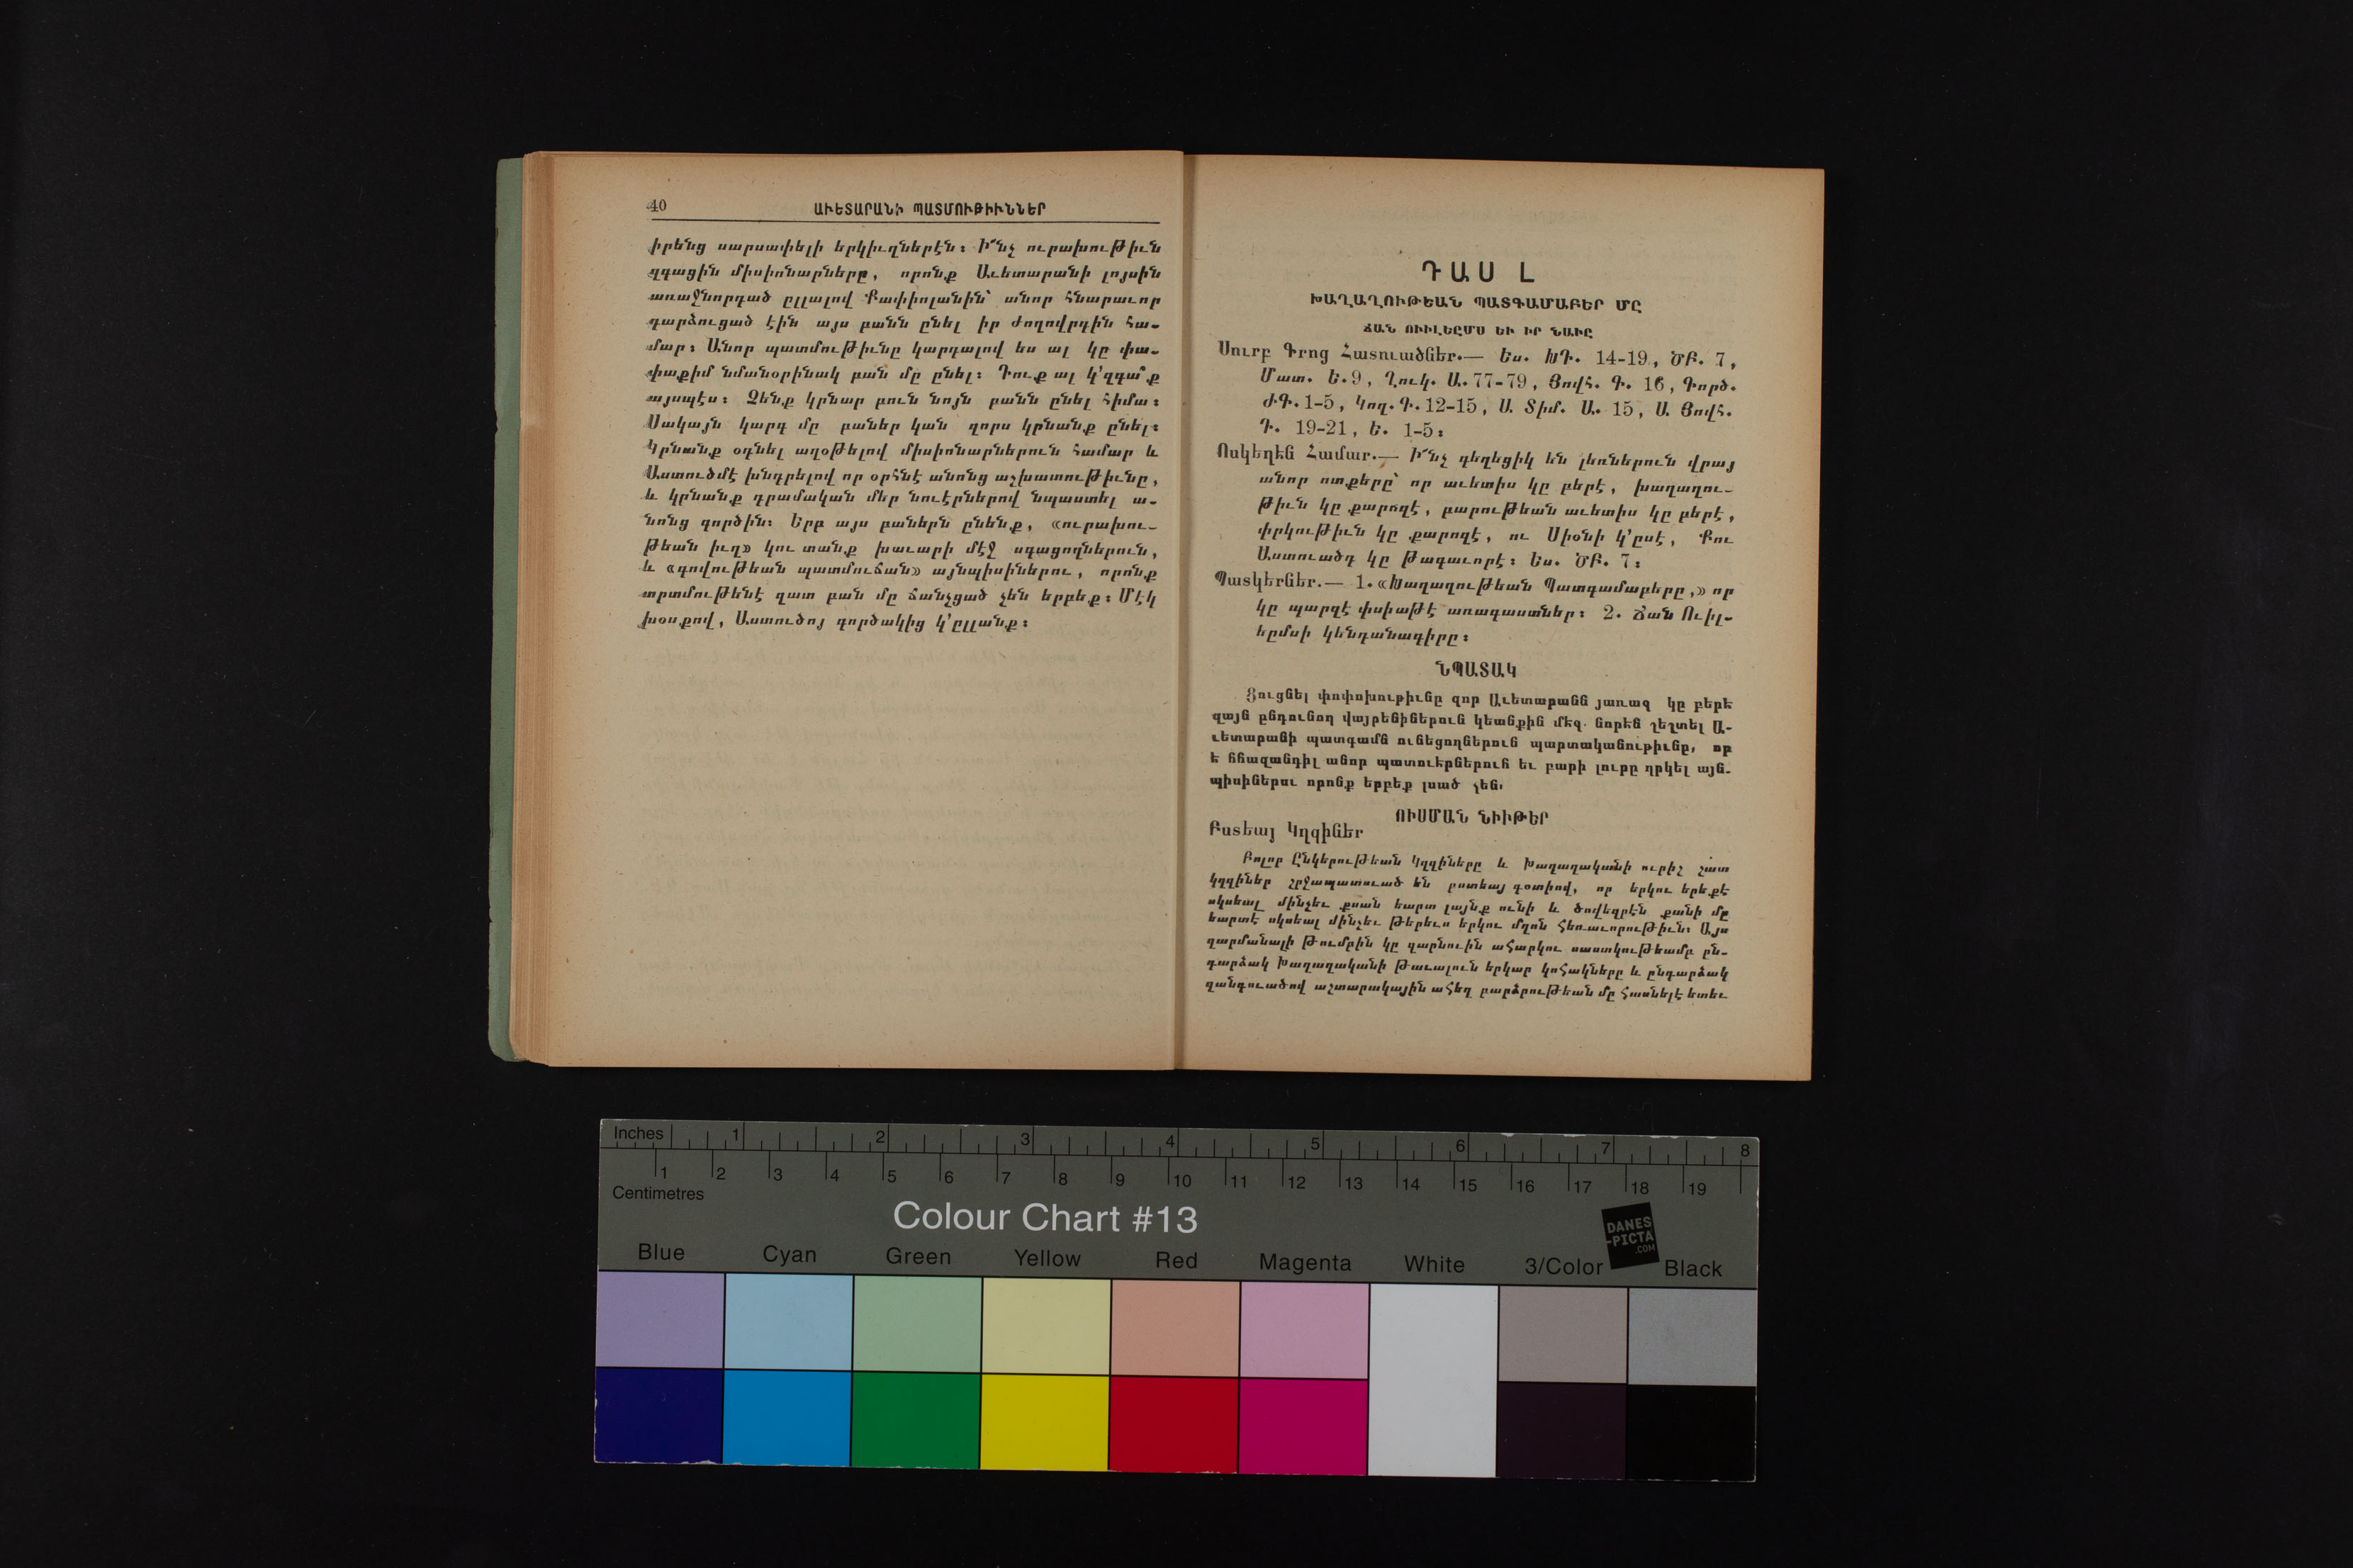 40
ԱՒԵՏԱՐԱՆԻ ՊԱՏՄՈՒԹԻՒՆՆԵՐ
իրենց սարսափելի երկիւղներէն։ Ի՜նչ ուրախութիւն
զգացին միսիոնարները, որոնք Աւետարանի լոյսին
առաջնորդած ըլլալով Քափիոլանին՝ անոր հնարաւոր
դարձուցած էին այս բանն ընել իր ժողովրդին հա-
մար։ Անոր պատմութիւնը կարդալով ես ալ կը փա-
փաքիմ նմանօրինակ բան մը ընել։ Դուք ալ կ՚զգա՞ք
այսպէս։ Չենք կրնար բուն նոյն բանն ընել հիմա։
Սակայն կարգ մը բաներ կան զորս կրնանք ընել։
Կրնանք օգնել աղօթելով միսիոնարներուն համար և
Աստուծմէ խնդրելով որ օրհնէ անոնց աշխատութիւնը,
և կրնանք դրամական մեր նուէրներով նպաստել ա-
նոնց գործին։ Երբ այս բաներն ընենք, «ուրախու-
թեան իւղ» կու տանք խաւարի մէջ սգացողներուն,
և «գովութեան պատմուճան» այնպիսիներու, որոնք
տրտմութենէ զատ բան մը ճանչցած չեն երբեք։ Մէկ
խօսքով, Աստուծոյ գործակից կ՚ըլլանք։
ԴԱՍ Լ
ԽԱՂԱՂՈՒԹԵԱՆ ՊԱՏԳԱՄԱԲԵՐ ՄԸ
ՃԱՆ ՈՒԻԼԵԸՄՍ ԵՒ ԻՐ ՆԱՒԸ
Սուրբ Գրոց Հատուածներ.— Ես. ԽԴ. 14-19, ԾԲ. 7,
Մատ. Ե. 9, Ղուկ. Ա. 77-79, Յովհ. Գ. 16, Գործ.
ԺԳ. 1-5, Կող. Գ. 12-15, Ա. Տիմ. Ա. 15, Ա. Յովհ.
Դ. 19-21, Ե. 1-5։
Ոսկեղէն Համար.— Ի՜նչ գեղեցիկ են լեռներուն վրայ
անոր ոտքերը՝ որ աւետիս կը բերէ, խաղաղու-
թիւն կը քարոզէ, բարութեան աւետիս կը բերէ,
փրկութիւն կը քարոզէ, ու Սիօնի կ՚ըսէ, Քու
Աստուածդ կը թագաւորէ։ Ես. ԾԲ. 7։
Պատկերներ.— 1. «Խաղաղութեան Պատգամաբերը,» որ
կը պարզէ փսիաթէ առագաստներ։ 2. Ճան Ուիլ-
եըմսի կենդանագիրը։
ՆՊԱՏԱԿ
Ցուցնել փոփոխութիւնը զոր Աւետարանն յառաջ կը բերէ
զայն ընդունող վայրենիներուն կեանքին մէջ. նորէն շեշտել Ա-
ւետարանի պատգամն ունեցողներուն պարտականութիւնը, որ
է հնազանդիլ անոր պատուէրներուն եւ բարի լուրը ղրկել այն-
պիսիներու որոնք երբեք լսած չեն։
ՈՒՍՄԱՆ ՆԻՒԹԵՐ
Բստեայ Կղզիներ
Բոլոր Ընկերութեան Կղզիները և Խաղաղականի ուրիշ շատ
կղզիներ շրջապատուած են բստեայ գօտիով, որ երկու երեքէ
սկսեալ մինչեւ քսան եարտ լայնք ունի և ծովեզրէն քանի մը
եարտէ սկսեալ մինչեւ թերեւս երկու մղոն հեռաւորութիւն։ Այս
զարմանալի թումբին կը զարնուին ահարկու սաստկութեամբ ըն-
դարձակ Խաղաղականի թաւալուն երկար կոհակները և ընդարձակ
զանգուածով աշտարակային ահեղ բարձրութեան մը հասնելէ ետեւ
Inches 1 2 3 4 5 6 7 8
1 2 3 4 5 6 7 8 9 10 11 12 13 14 15 16 17 18 19
Centimetres
Colour Chart #13
DANES
-PICTA
.COM
Blue Cyan Green Yellow Red Magenta White 3/Color Black